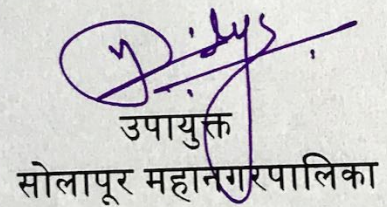 उपायुक्त
सोलापूर महानगरपालिका